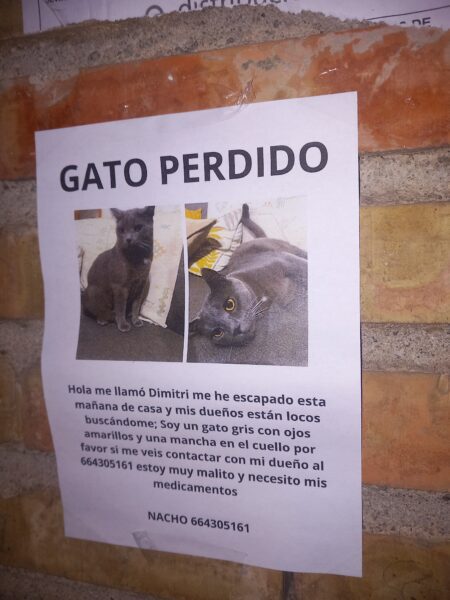 distribu
AS DE
GATO PERDIDO
Hola me llamó Dimitri me he escapado esta
mañana de casa y mis dueños están locos
buscándome; Soy un gato gris con ojos
amarillos y una mancha en el cuello por
favor si me veis contactar con mi dueño al
664305161 estoy muy malito y necesito mis
medicamentos
NACHO 664305161